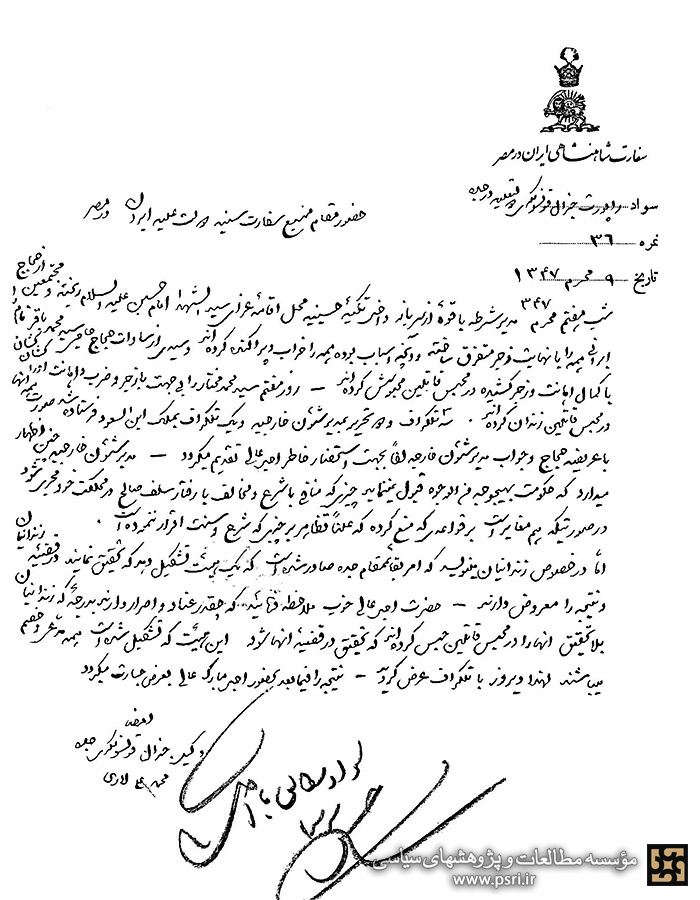 سفارت شاهنشاهی ایران در مصر
سواد راپورت جنرال قونسولگری در جده
نمره ۳۶
تاریخ ۹ محرم ۱۳۴۷
حضور مقام منیع سفارت سنیه دولت علیه ایران در مصر
شب هفتم محرم ۳۴۷ مدیر شرطه با قوه داخل تکیه حسینیه محل اقامه عزای سید الشهدا امام حسین علیه السلام ریخته و مجتمعین از حجاج
ایرانی همه را با نهایت و زجر متفرق ساخته و آنچه اسباب بوده همه را خراب و پراکنده کرده‌اند و سیدی از سادات حجاج سید محمد باقر نام
با کمال اهانت و زجر کشیده در محبس قاتلین محبوس کرده‌اند – روز هفتم سید محمد مختار را بی جهت با زجر و ضرب و اهانت
در محبس قاتلین زندان کرده‌اند. سه تلگراف و تحریر بمدیر شئون خارجیه و یک تلگراف بملک ابن السعود فرستاده شد صورت همه آنها
با عریضه حجاج و جواب مدیر شئون خارجه لفاً بجهت استحضار خاطر امیر عالی تقدیم میگردد – مدیر شئون خارجیه چنین اظهار
میدارد که حکومت بهیچوجه من الوجوه قبول نمینماید چیزی که منافی با شرع و مخالف با رفتار سلف صالح در مملکت خود مجری شود
در صورتیکه هم مغایر است بر قواعدی که منع کرده که علناً تظاهر بر چیزی که شرع و سنت اقرار ننموده است.
اما در خصوص زندانیان میگوید که امر بقائمقام جده صادر شده است که یک هیئت تشکیل دهد که تحقیق نمایند در قضیه زندانیان
و نتیجه را معروض دارند – حضرت امیر عالی خوب ملاحظه فرمائید که چقدر عناد و اصرار دارند بدرجه که زندانیان
بلا تحقیق آنها را در محبس قاتلین حبس کرده‌اند که تحقیق در قضیه آنها شود این هیئت که تشکیل شده است همه مدعی و خصم
میباشند لهذا دیروز با تلگراف عرض گردید – نتیجه را فیما بعد بحضور امیر مبارک عالی بعرض جسارت میگردد
وکیل جنرال قونسولگری جده
لاری
سواد مطابق با اصل است
مؤسسه مطالعات و پژوهشهای سیاسی
www.psri.ir